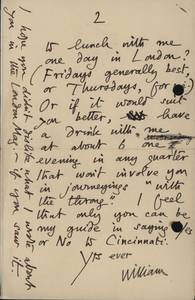 2
to lunch with me
one day in London?
(Fridays generally best,
or Thursdays, for
Or if it would suit
you better, have
a drink with me
at about 6 one
evening in any quarter
that won't involve you
in journeyings "with
the throng". I feel
that only you can be
my guide in saying Yes
or No to Cincinnati.
Yrs ever
William
I hope you didn't dislike what I wrote about
you in the London Mag. if you saw it.